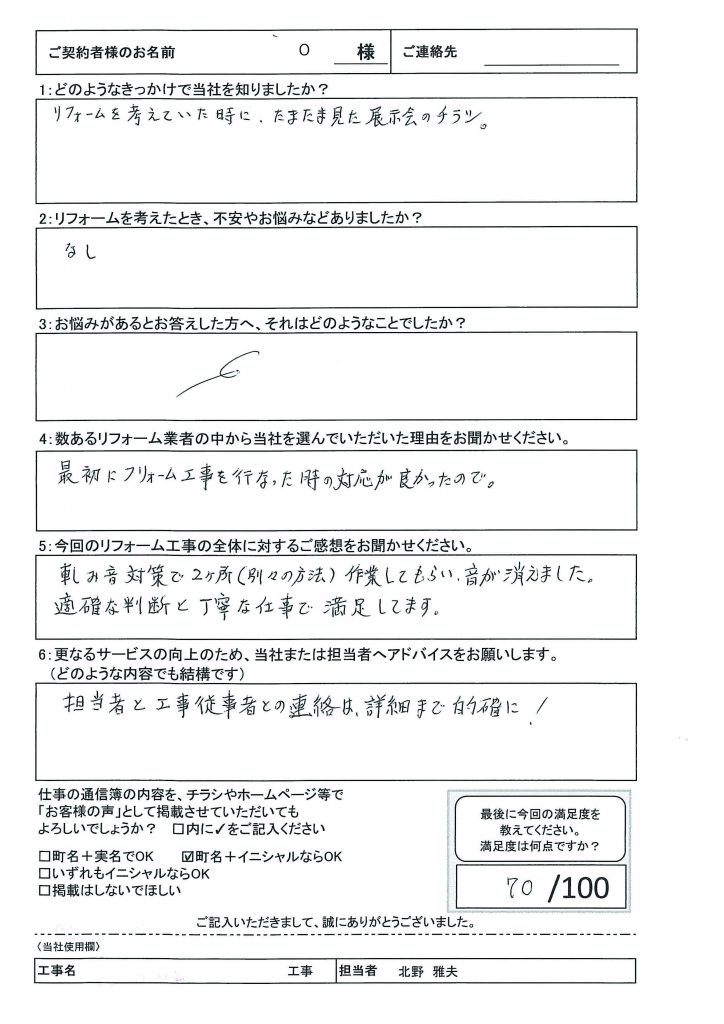 ご契約者様のお名前 O 様 ご連絡先
1:どのようなきっかけで当社を知りましたか?
リフォームを考えていた時に、たまたま見た展示会のチラシ。
2:リフォームを考えたとき、不安やお悩みなどありましたか?
なし
3:お悩みがあるとお答えした方へ、それはどのようなことでしたか?
4:数あるリフォーム業者の中から当社を選んでいただいた理由をお聞かせください。
最初にフリォーム工事を行なった時の対応が良かったので。
5:今回のリフォーム工事の全体に対するご感想をお聞かせください。
軋み音対策で2ヶ所(別々の方法)作業してもらい、音が消えました。
適確な判断と丁寧な仕事で満足してます。
6:更なるサービスの向上のため、当社または担当者へアドバイスをお願いします。
(どのような内容でも結構です)
担当者と工事従事者との連絡は、詳細まで的確に!
仕事の通信簿の内容を、チラシやホームページ等で
「お客様の声」として掲載させていただいても
よろしいでしょうか? □内に✓をご記入ください
□町名+実名でOK ☑町名+イニシャルならOK
□いずれもイニシャルならOK
□掲載はしないでほしい
最後に今回の満足度を
教えてください。
満足度は何点ですか?
70 /100
ご記入いただきまして、誠にありがとうございました。
〈当社使用欄〉
工事名 工事 担当者 北野 雅夫